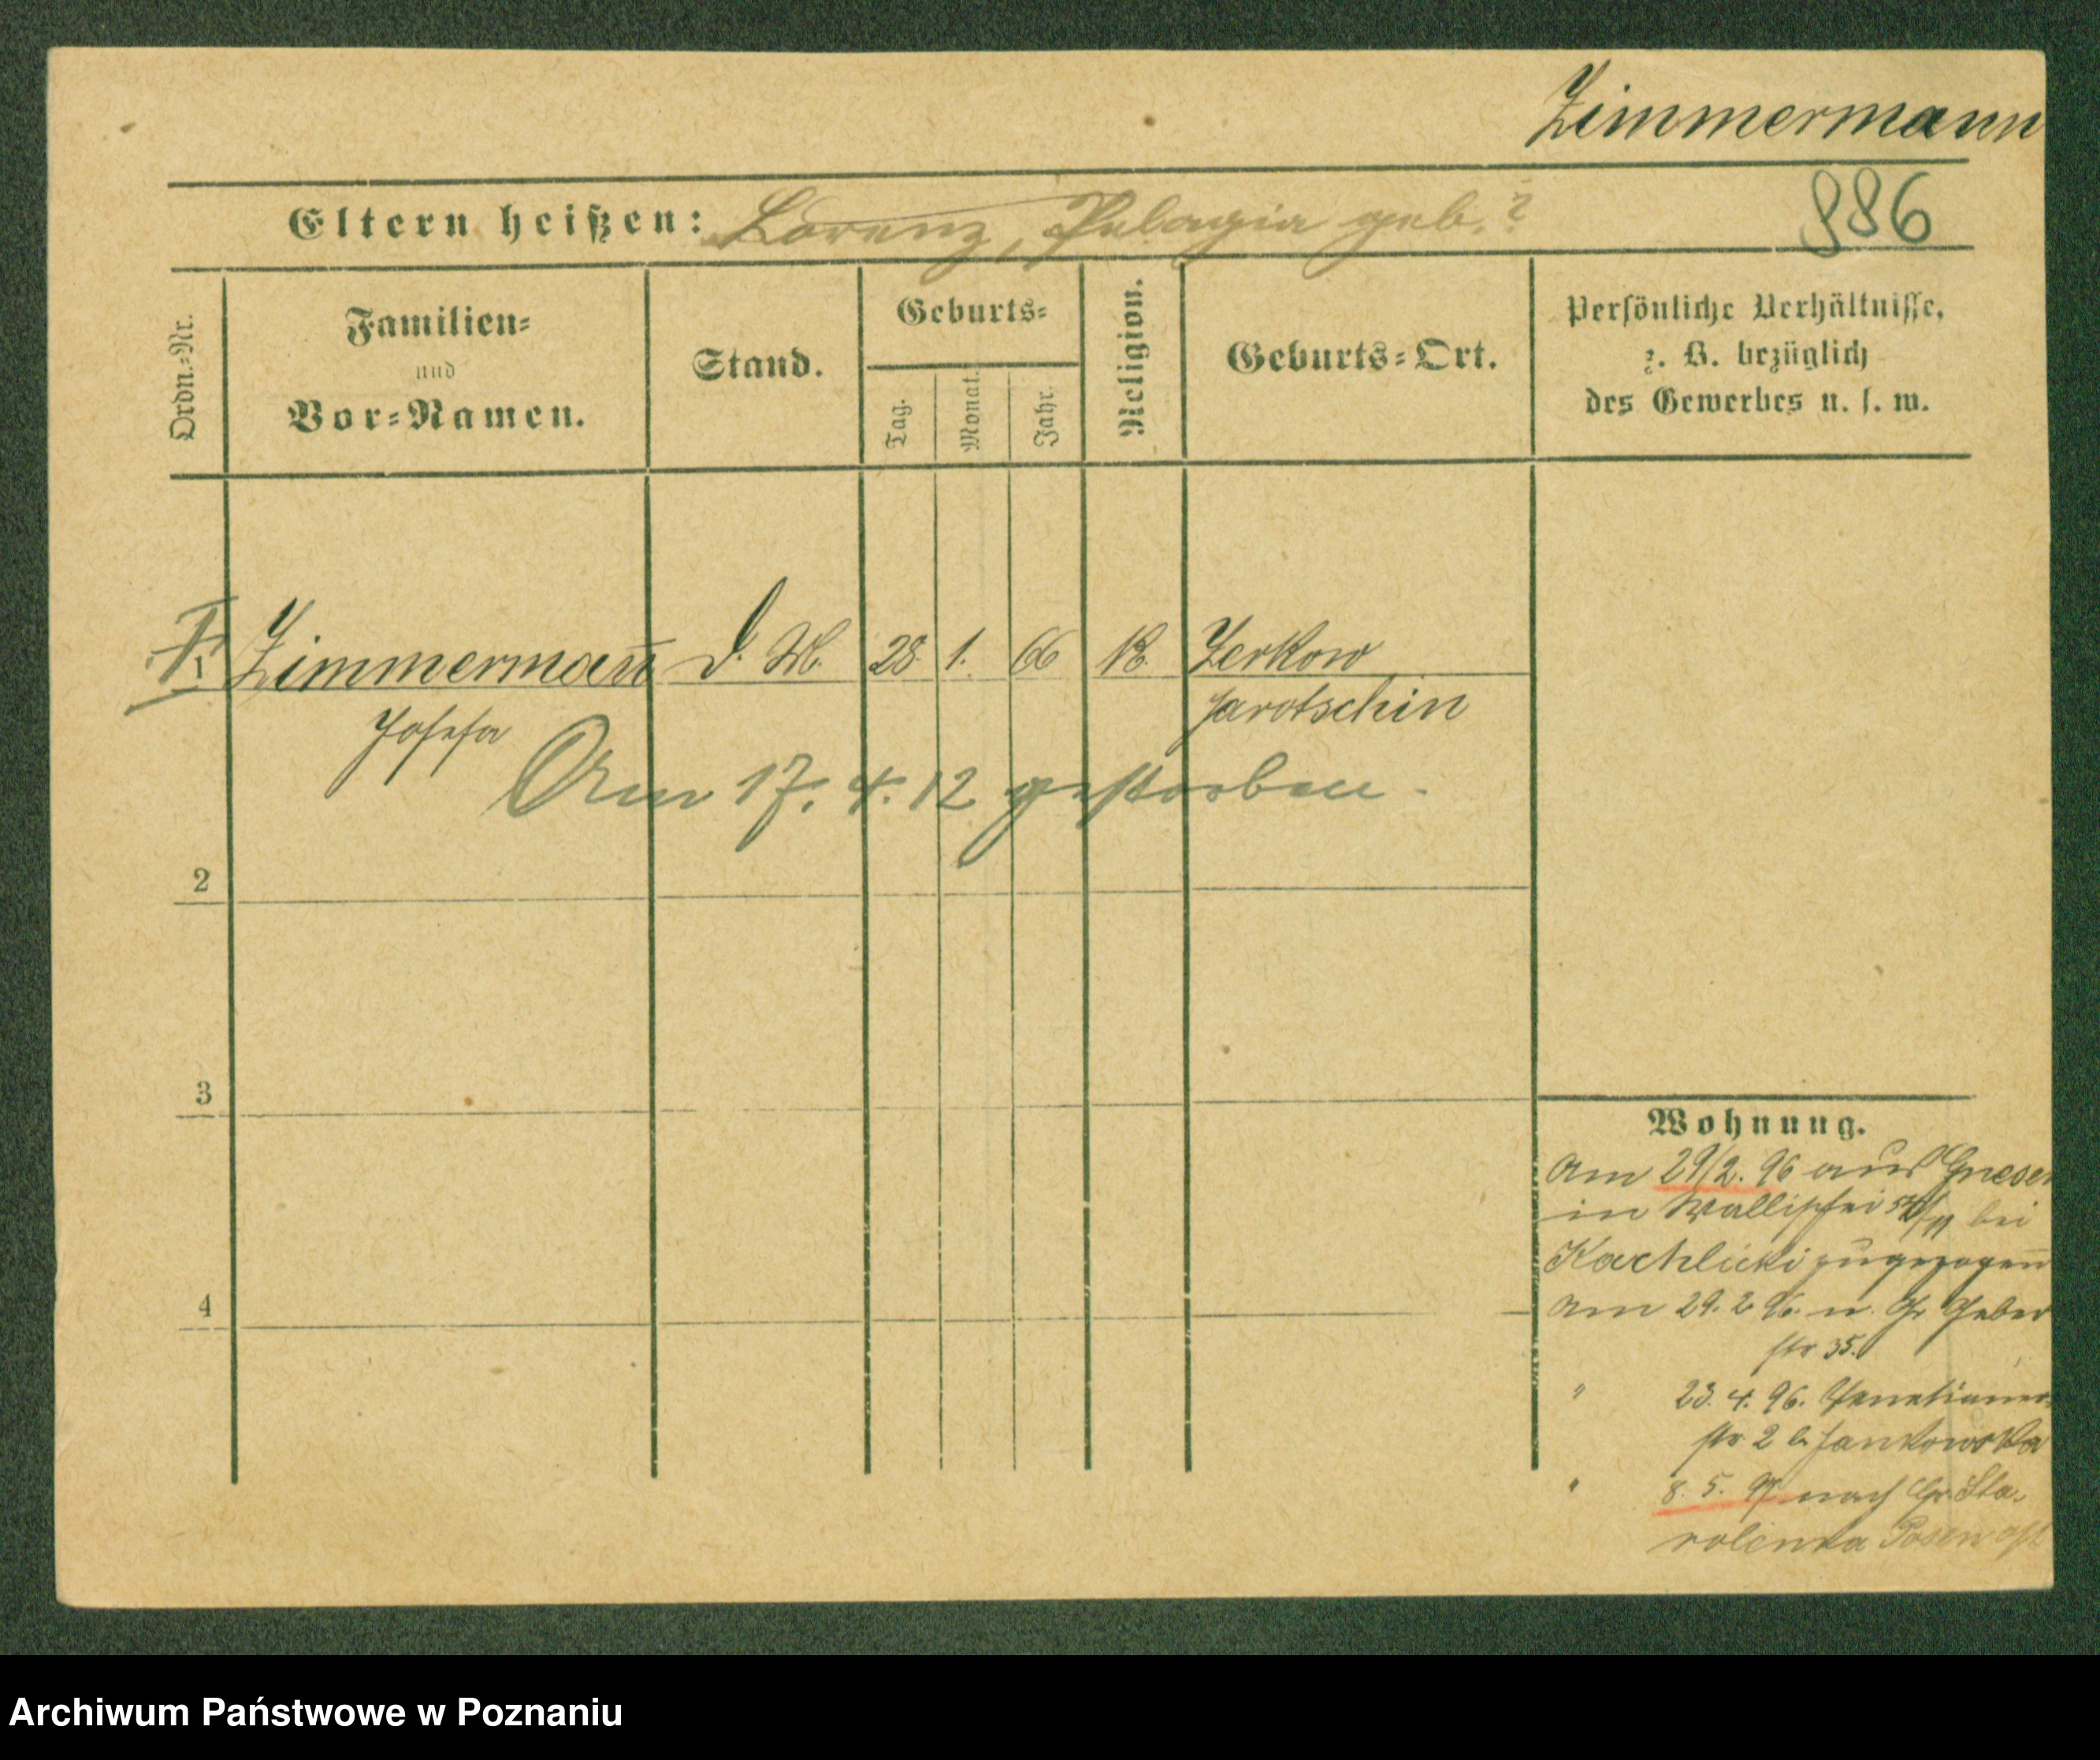 Zimmermann
886
Eltern heißen: Lorenz, Pelagia geb. ?
Ordn.=Nr.
Familien=
und
Vor=Namen.
Stand.
Geburts=
Tag.
Monat.
Jahr.
Religion.
Geburts=Ort.
Persönliche Verhältnisse,
z. B. bezüglich
des Gewerbes u. s. w.
1 Zimmermañ D. M. 28. 1. 66 K. Zerkow
Josefa Jarotschin
Am 17. 4. 12 gestorben.
2
3
4
Wohnung.
Am 29/2. 96 aus Gnesen
in Wallischei bei
Kachlicki zugezogen
Am 29. 2. 96. n. Gr Gerber
str 35.
" 23. 4. 96. Venetianer
str 2 b. Jankowska
" 8. 5. 97 nach Gr. Sta-
rolenka Posen ost
Archiwum Państwowe w Poznaniu